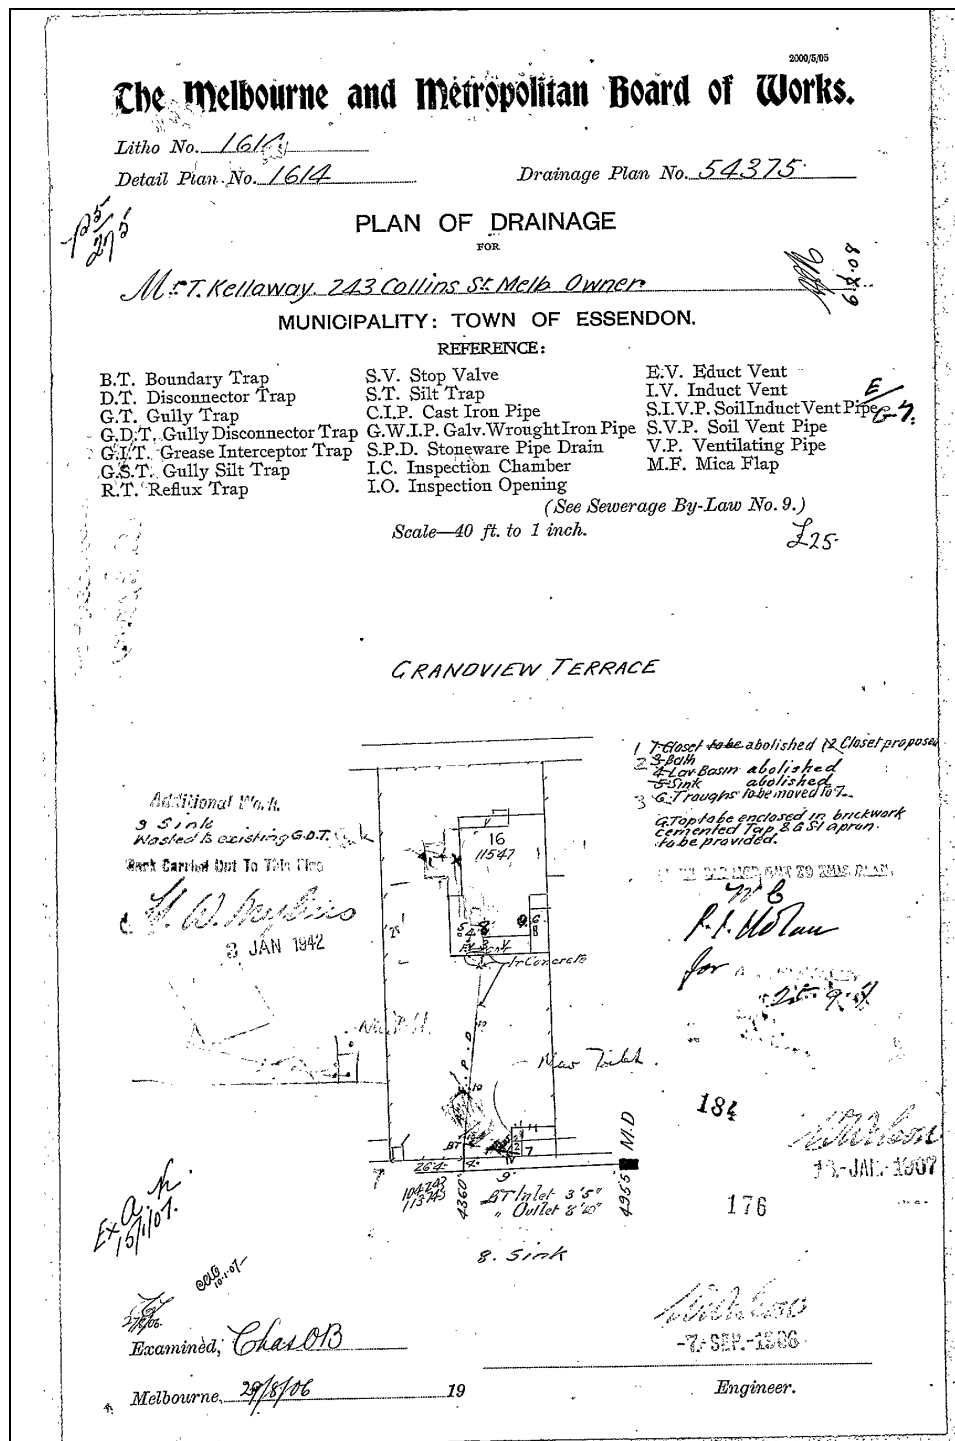 2000/5/05
The Melbourne and Metropolitan Board of Works.
Litho No. 1614
Detail Plan No. 1614
Drainage Plan No. 54375
PLAN OF DRAINAGE
FOR
Mr T. Kellaway 243 Collins St Melb Owner
6.2.08
MUNICIPALITY: TOWN OF ESSENDON.
REFERENCE:
B.T. Boundary Trap
D.T. Disconnector Trap
G.T. Gully Trap
G.D.T. Gully Disconnector Trap
G.I.T. Grease Interceptor Trap
G.S.T. Gully Silt Trap
R.T. Reflux Trap
S.V. Stop Valve
S.T. Silt Trap
C.I.P. Cast Iron Pipe
G.W.I.P. Galv. Wrought Iron Pipe
S.P.D. Stoneware Pipe Drain
I.C. Inspection Chamber
I.O. Inspection Opening
E.V. Educt Vent
I.V. Induct Vent
S.I.V.P. Soil Induct Vent Pipe
S.V.P. Soil Vent Pipe
V.P. Ventilating Pipe
M.F. Mica Flap
(See Sewerage By-Law No. 9.)
Scale—40 ft. to 1 inch.
£25
GRANDVIEW TERRACE
1 Closet to be abolished 12 Closet proposed
2 3 Bath
4 Lav Basin abolished
5 Sink abolished
3 6 Troughs to be moved to 7
G. Top to be enclosed in brickwork
cemented Tap & G SI apron
to be provided.
Additional Work.
9 Sink
Wasted to existing G.D.T.
Work Carried Out To This Plan
3 JAN 1942
16
11547
In Concrete
S.P.D
New Toilet.
184
BT
26'4"
4360
4955
M D
104243
113743
BT Inlet 3'5"
" Outlet 8'10"
8. Sink
13-JAN.-1907
176
Ex
15/1/07.
10.1.07
27/8/06.
Examined, Chas OB
-7-SEP.-1906
Melbourne, 29/8/06 19
Engineer.